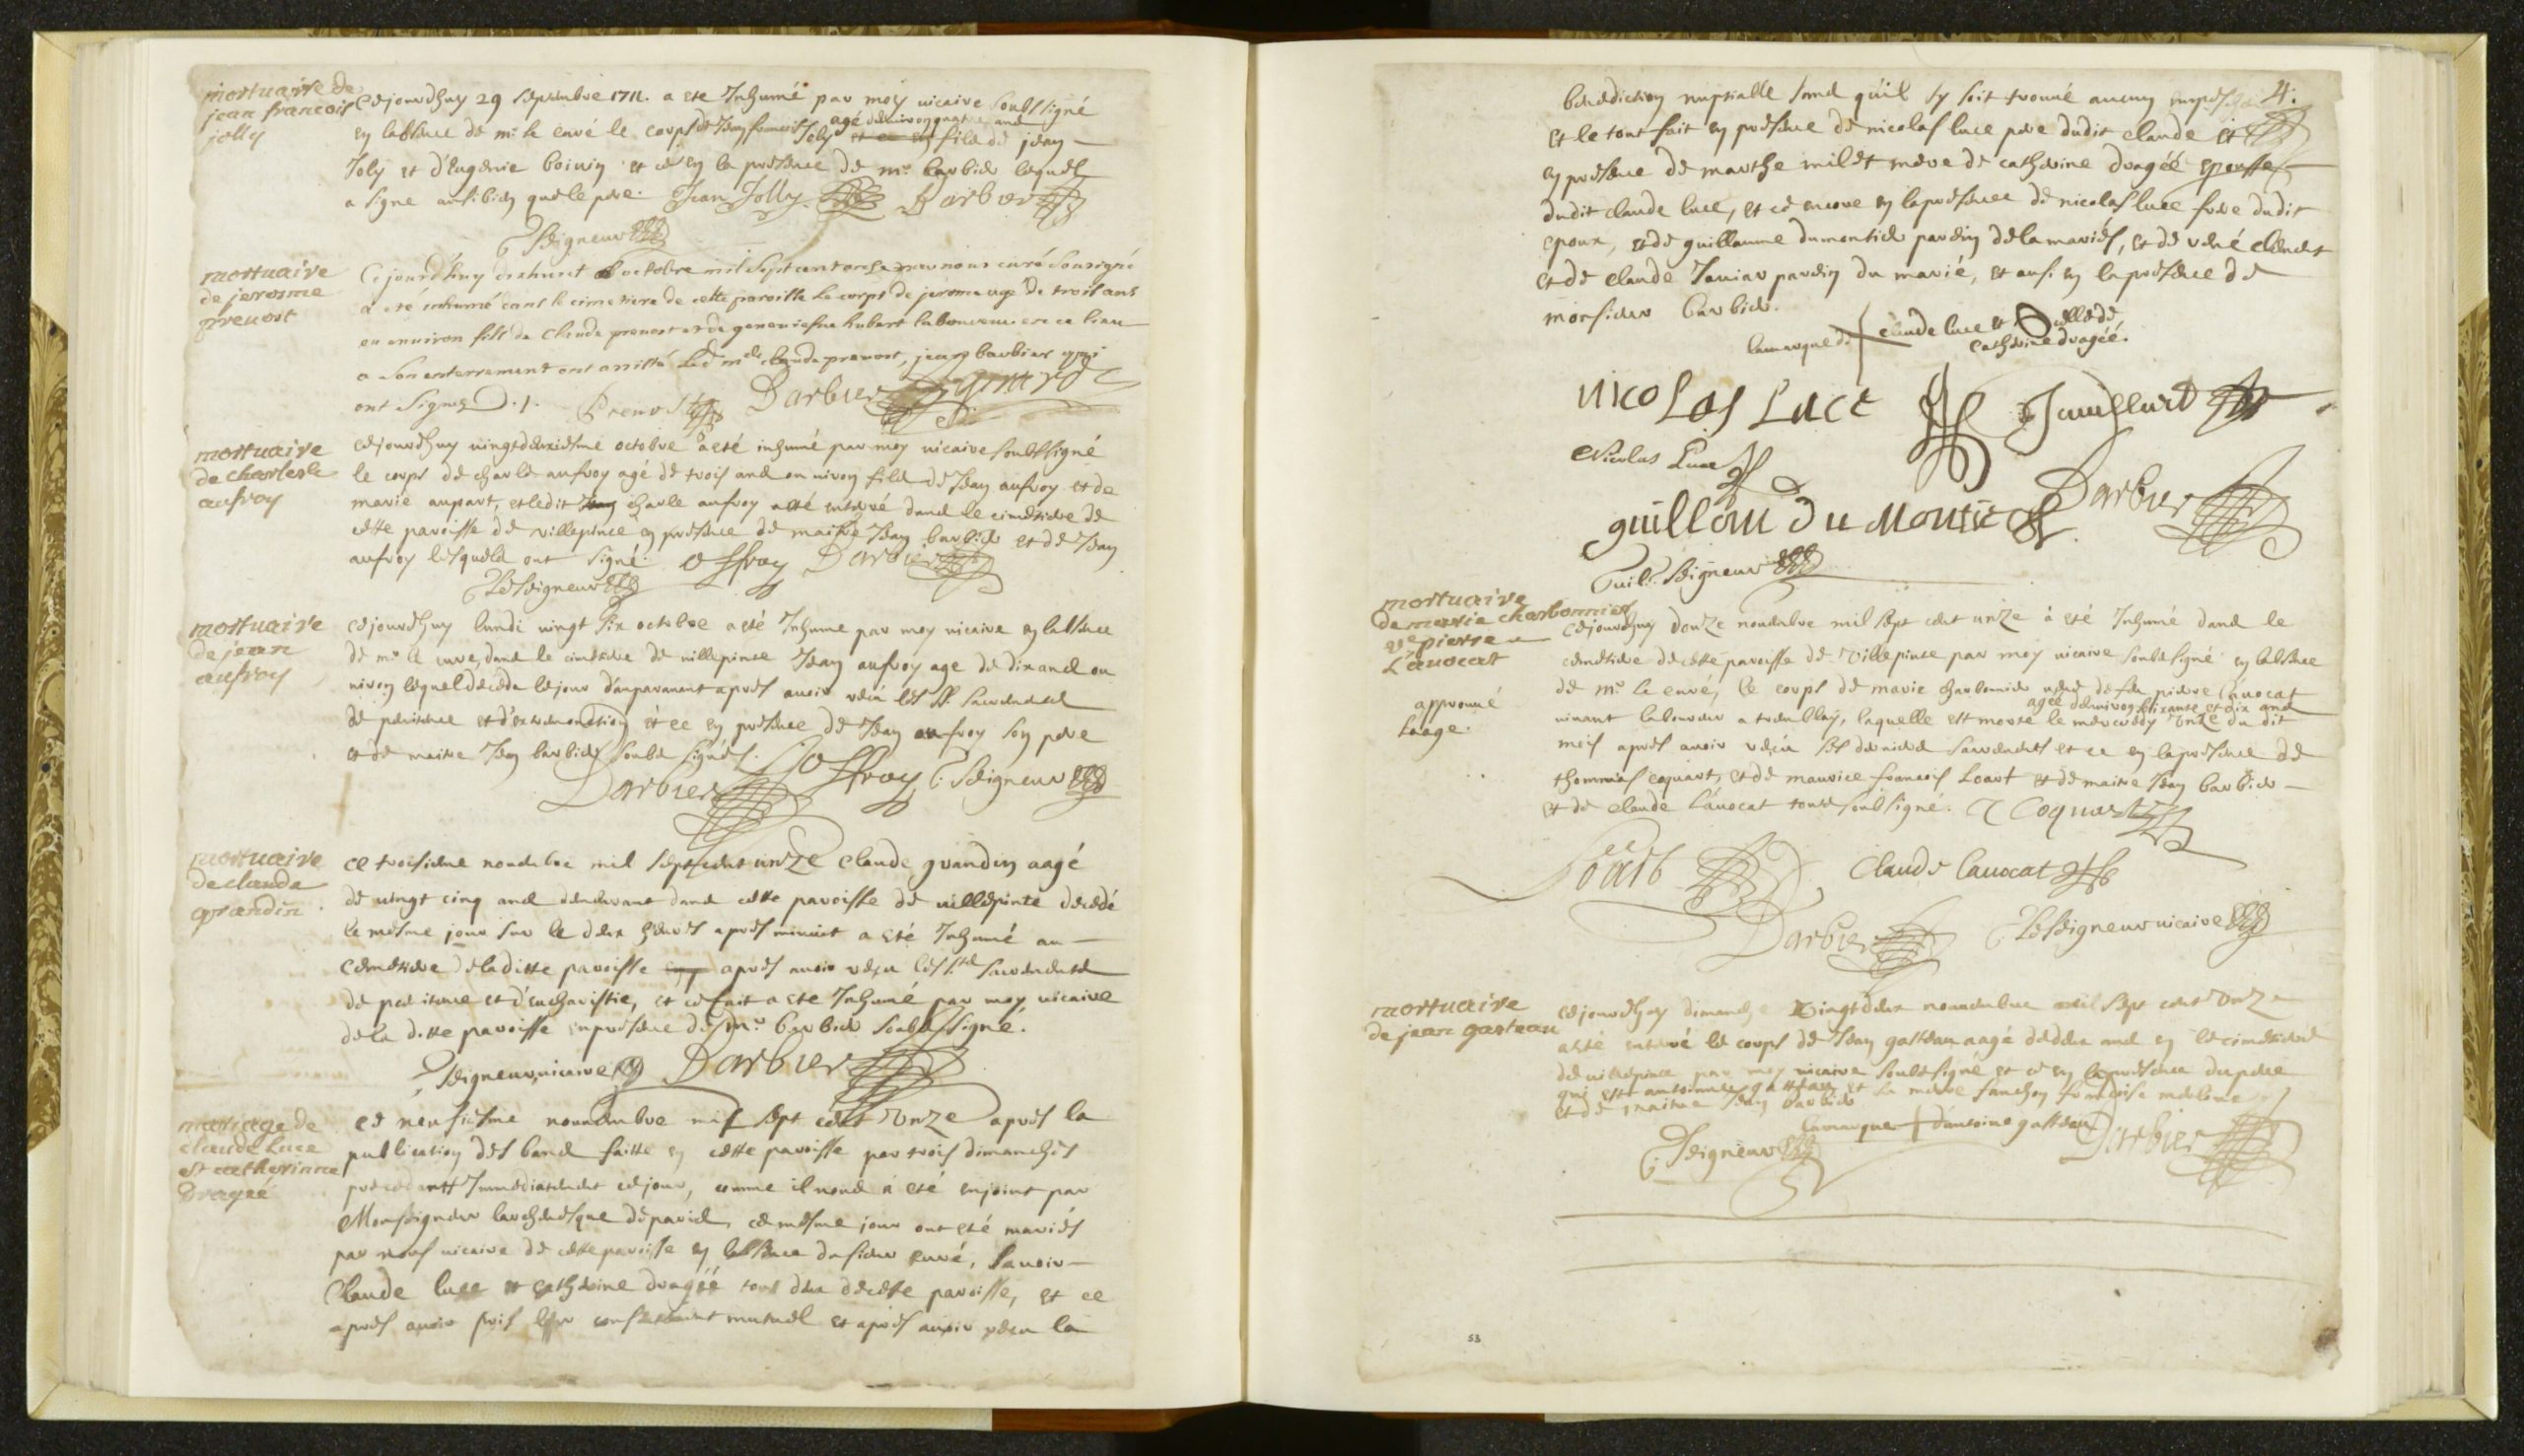 mortuaire de
jean francois
jolly
Cejourdhuy 29 septembre 1711. a ete Inhumé par moy vicaire soubssigné
en labsence de mr le curé le corps de Jean francois Joly agé denviron quatre ans et ce en fils de jean
Joly et d'Eugenie boivin et ce en la presence de mr. barbier lequel
a signe aussibien que le pere. Jean Jolly Barbier
Seigneur
mortuaire
de jerosme
prevost
Ce jourd'huy dixhuict octobre mil sept cent onze par nous curé sousigné
a eté inhumé dans le cimetiere de cette paroisse le corps de jerome agé de trois ans
ou environ fils de Claude prevost et de geneviefve hubert laboureur en ce lieu
a son enterrement ont assisté led claude prevost, jean barbier qui
ont signez D.j. Prevost Barbier
mortuaire
de charles
aufroy
cejourdhuy vingtdeuxiesme octobre a eté inhumé par moy vicaire soubssigné
le corps de charle aufroy agé de trois ans environ fils de Jean aufroy et de
marie aupart, et ledit Jean charle aufroy a été enterré dans le cimetiere de
cette paroisse de villepinte en presence de maitre Jean barbier et de Jean
aufroy lesquels ont signé. offroy Barbier
Le Seigneur
mortuaire
de jean
aufroy
cejourdhuy lundi vingt six octobre a eté Inhume par moy vicaire en labsence
de mr le cure, dans le cimetiere de villepinte Jean aufroy age de dix ans en
viron lequel deceda le jour d'auparavant apres avoir reçu les SS. sacrements
de penitence et d'extremonction et ce en presence de Jean aufroy son pere
et de maitre Jean barbier soubs signés.
Barbier Joffroy Seigneur
mortuaire
de claude
grandin
ce troisieme novembre mil sept cent unze claude grandin aagé
de vingt cinq ans demeurant dans cette paroisse de villepinte decedé
le mesme jour sur le deux heures apres minuit a eté Inhumé au
cemetiere de laditte paroisse apres avoir reçu les sts sacrements
de penitence et d'eucharistie, et ce fait a ete Inhumé par moy vicaire
de la ditte paroisse en presence de mr. barbier soubssigné.
Seigneur, vicaire Barbier
mariage de
claude luce
et catherinne
Dragée
ce neufiesme novembre mil sept cent unze apres la
publication des bans faitte en cette paroisse par trois dimanches
precedents Immediatement ce jour, comme il nous a eté enjoint par
Monseigneur larchevesque de paris, ce mesme jour ont eté mariés
par nous vicaire de cette paroisse en labsence du sieur curé, savoir
Claude luce et catherine dragée tous deux de cette paroisse, et ce
apres avoir pris leur consentement mutuel et apres avoir reçu la
4.
benediction nuptialle sans qu'il sy soit trouvé aucun
et le tout fait en presence de nicolas luce pere dudit claude et
en presence de marthe milet mere de catherine dragée epousse
dudit claude luce, et ce encore en la presence de nicolas luce frere dudit
epoux, et de guillaume dumontier parein de la mariés, et de rené clement
et de claude parein du marié, et aussi en la presence de
monsieur barbier.
la marque de claude luce et celle de
catherine dragée.
nicoLas Luce
Nicolas Luce
Barbier
guillaum du Montier
Guil. Seigneur
mortuaire
de marie charbonnier
ve pierre
L'avocat
approuvé
laage.
cejourdhuy douze novembre mil sept cent unze à eté Inhumé dans le
cemetiere de cette paroisse de villepinte par moy vicaire soubsigné en labsence
de mr le curé, le corps de marie charbonnier veuve de feu pierre lavocat
agée denviron soixante et dix ans
vivant laboureur a tremblay, laquelle est morte le mercredy unze du dit
mois apres avoir reçu ses derniers sacrements et ce en la presence de
thommas coquart, et de maurice francois Loart et de maitre Jean barbier
et de claude l'avocat tous soubsigné. T Coquart
Loart Claude lavocat
Barbier Le Seigneur vicaire
mortuaire
de jean gasteau
cejourdhuy dimanche vingtdeux novembre mil sept cent unze
a eté enterré le corps de Jean gasteau aagé de deux ans en le cimetiere
de villepinte par moy vicaire soubssigné et ce en la presence du pere
qui est antoinne gasteau et la mere francoise
et de maitre Jean barbier
la marque d'antoine gasteau
Seigneur Barbier
53